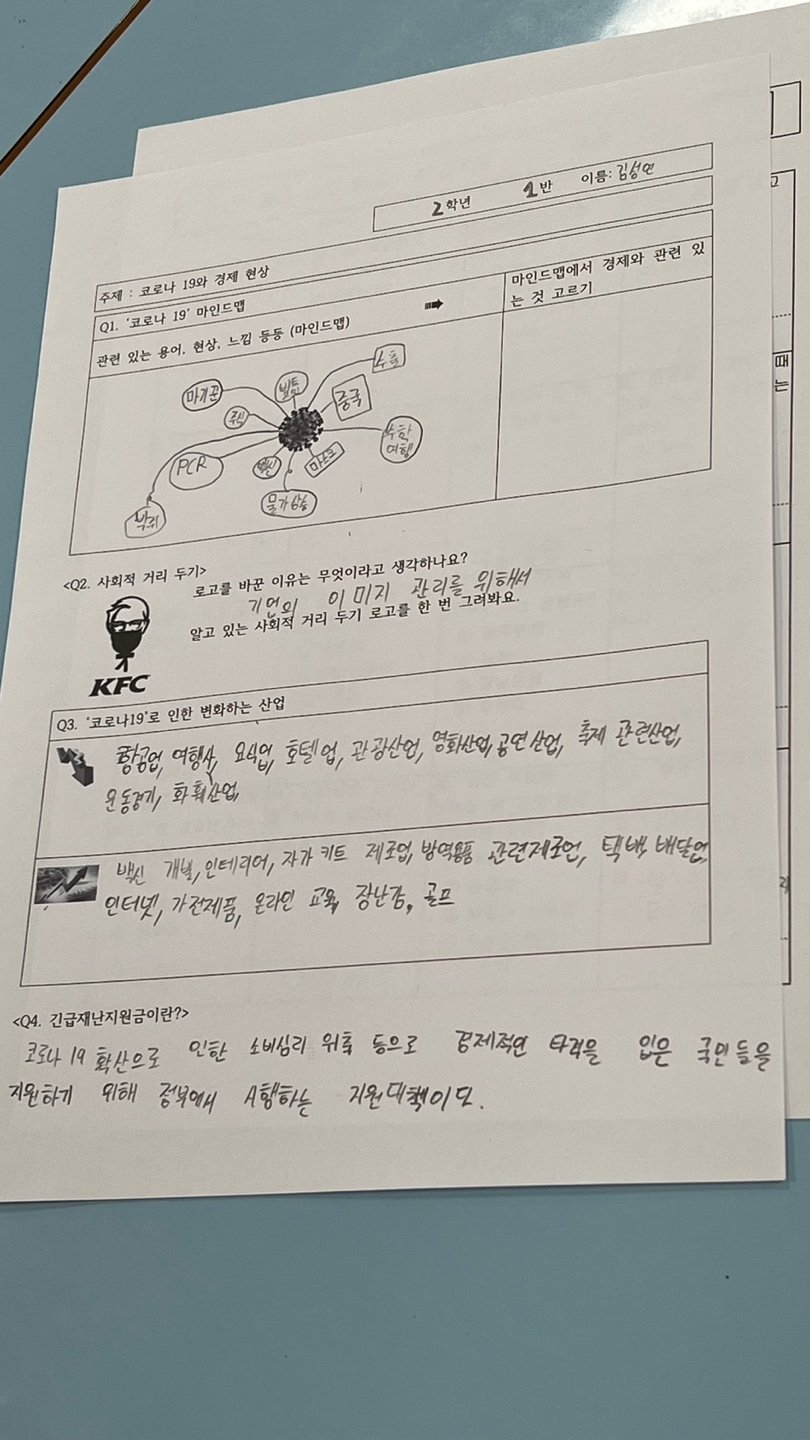 2학년 1반 이름: 김성연
주제 : 코로나 19와 경제 현상
Q1. '코로나 19' 마인드맵
관련 있는 용어, 현상, 느낌 등등 (마인드맵)
마인드맵에서 경제와 관련 있
는 것 고르기
마기꾼
빌 게이츠
수출
주식
중국
PCR
백신
마스크
수학
여행
물가상승
박쥐
<Q2. 사회적 거리 두기>
로고를 바꾼 이유는 무엇이라고 생각하나요?
기업의 이미지 관리를 위해서
알고 있는 사회적 거리 두기 로고를 한 번 그려봐요.
KFC
Q3. '코로나19'로 인한 변화하는 산업
항공업, 여행사, 요식업, 호텔업, 관광산업, 영화산업, 공연산업, 축제 관련산업,
운동경기, 화훼산업,
백신 개발, 인테리어, 자가 키트 제조업, 방역용품 관련제조업, 택배, 배달업,
인터넷, 가전제품, 온라인 교육, 장난감, 골프
<Q4. 긴급재난지원금이란?>
코로나 19 확산으로 인한 소비심리 위축 등으로 경제적인 타격을 입은 국민들을
지원하기 위해 정부에서 시행하는 지원대책이다.
때는